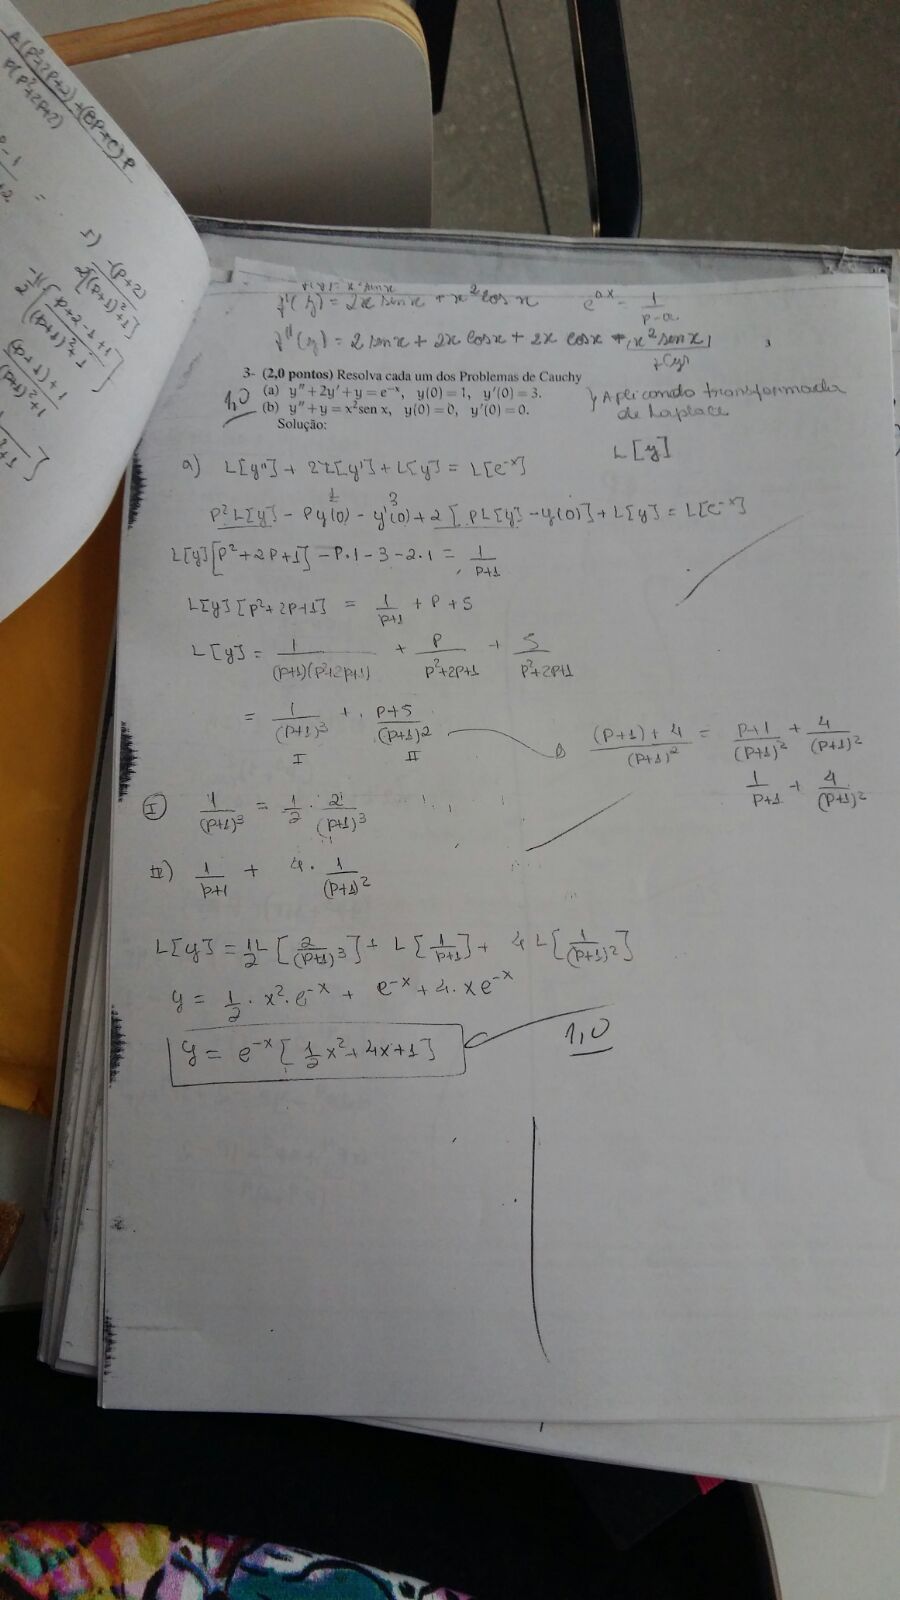 f'(y) = 2x sen x + x² cos x
e^ax = 1/(p-a)
f''(y) = 2 sen x + 2x cos x + 2x cos x + x² sen x
3- (2,0 pontos) Resolva cada um dos Problemas de Cauchy
(a) y'' + 2y' + y = e⁻ˣ, y(0) = 1, y'(0) = 3.
(b) y'' + y = x² sen x, y(0) = 0, y'(0) = 0.
Solução:
1,0
} Aplicando transformada
de Laplace
L[y]
a) L[y''] + 2L[y'] + L[y] = L[e⁻ˣ]
1 3
p² L[y] - py(0) - y'(0) + 2[pL[y] - y(0)] + L[y] = L[e⁻ˣ]
L[y][p² + 2p + 1] - p·1 - 3 - 2·1 = 1/(p+1)
L[y][p² + 2p + 1] = 1/(p+1) + p + 5
L[y] = 1/((p+1)(p²+2p+1)) + p/(p²+2p+1) + 5/(p²+2p+1)
= 1/(p+1)³ + (p+5)/(p+1)²
I II
((p+1)+4)/(p+1)² = (p+1)/(p+1)² + 4/(p+1)²
1/(p+1) + 4/(p+1)²
I 1/(p+1)³ = 1/2 · 2/(p+1)³
II) 1/(p+1) + 4 · 1/(p+1)²
L[y] = 1/2 L[2/(p+1)³] + L[1/(p+1)] + 4L[1/(p+1)²]
y = 1/2 · x² · e⁻ˣ + e⁻ˣ + 4 · xe⁻ˣ
y = e⁻ˣ[1/2 x² + 4x + 1]
1,0
A(p²+2p+2)+(Bp+C)p
p(p²+2p+2)
I)
-(p+2)
2[(p+1)²+1]
-1/2[(p+2-1+1)/((p+1)²+1)]
(p+1)+1
(p+1)²+1